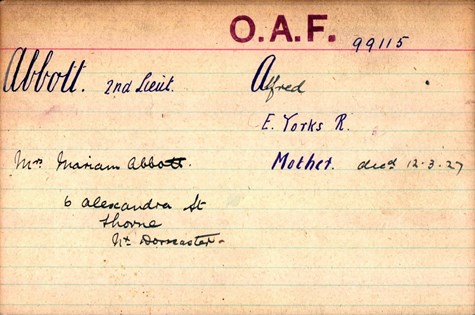 O.A.F. 99115
Abbott. 2nd Lieut. Alfred
E. Yorks R.
Mrs Mariam Abbott. Mother. decd 12-3-27
6 Alexandra St
Thorne
Nr Doncaster